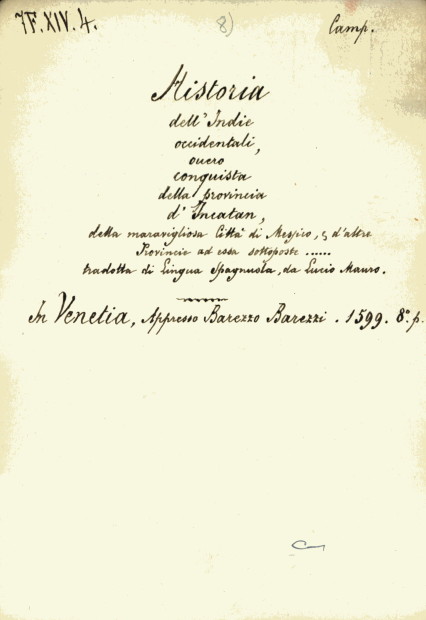 7F.XIV.4.
8)
Camp.
Historia
dell' Indie
occidentali,
overo
conquista
della provincia
d' Incatan,
della maravigliosa Città di Messico, & d'altre
Provincie ad essa sottoposte ......
tradotta di Lingua Spagnuola, da Lucio Mauro.
In Venetia, Appresso Barezzo Barezzi. 1599. 8.° p.